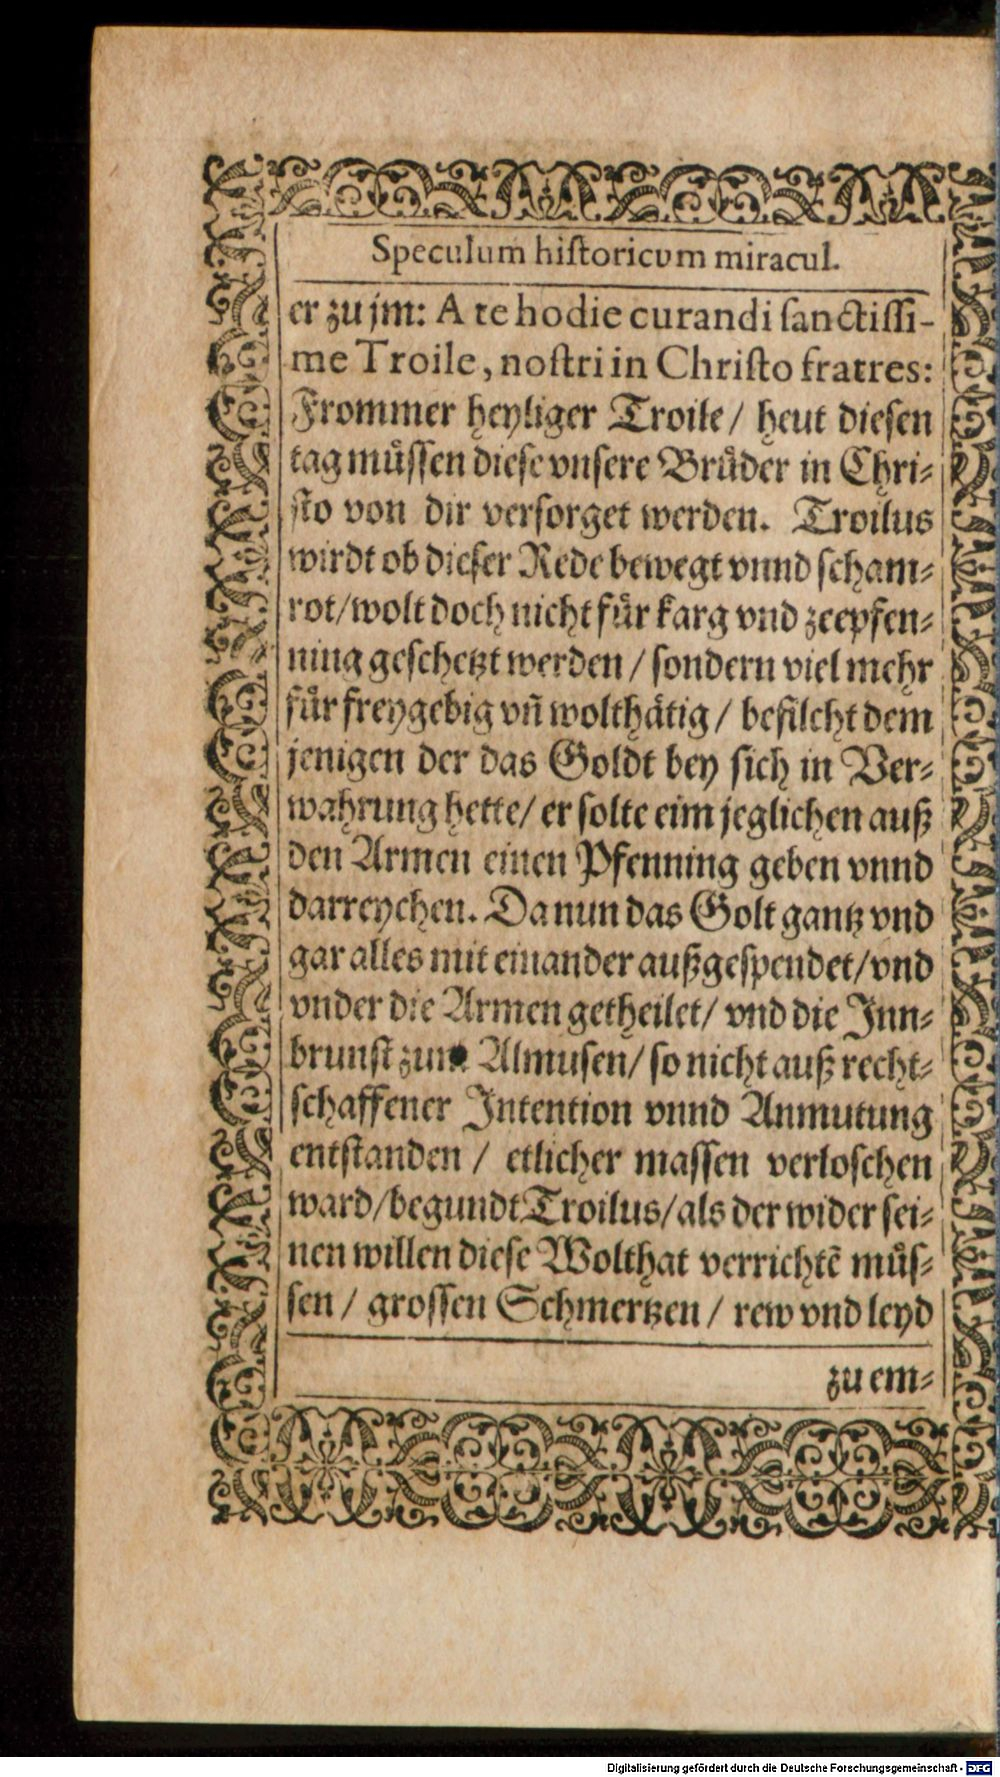 Speculum hiſtoricum miracul.
er zu jm: A te hodie curandi ſanctiſſi-
me Troile, noſtri in Chriſto fratres:
Frommer heyliger Troile/ heut dieſen
tag muͤſſen dieſe vnſere Bruͤder in Chri⸗
ſto von dir verſorget werden. Troilus
wirdt ob dieſer Rede bewegt vnnd ſcham⸗
rot/wolt doch nicht fuͤr karg vnd zeepfen⸗
ning geſchetzt werden / ſondern viel mehr
fuͤr freygebig vñ wolthaͤtig/ befilcht dem
jenigen der das Goldt bey ſich in Ver⸗
wahrung hette/ er ſolte eim jeglichen auß
den Armen einen Pfenning geben vnnd
darreychen. Da nun das Golt gantz vnd
gar alles mit einander außgeſpendet/vnd
vnder die Armen getheilet/ vnd die Jnn⸗
brunſt zum Almuſen/ ſo nicht auß recht⸗
ſchaffener Jntention vnnd Anmutung
entſtanden / etlicher maſſen verloſchen
ward/begundt Troilus/als der wider ſei⸗
nen willen dieſe Wolthat verrichtẽ muͤſ⸗
ſen / groſſen Schmertzen / rew vnd leyd
zu em⸗
Digitalisierung gefördert durch die Deutsche Forschungsgemeinschaft - DFG